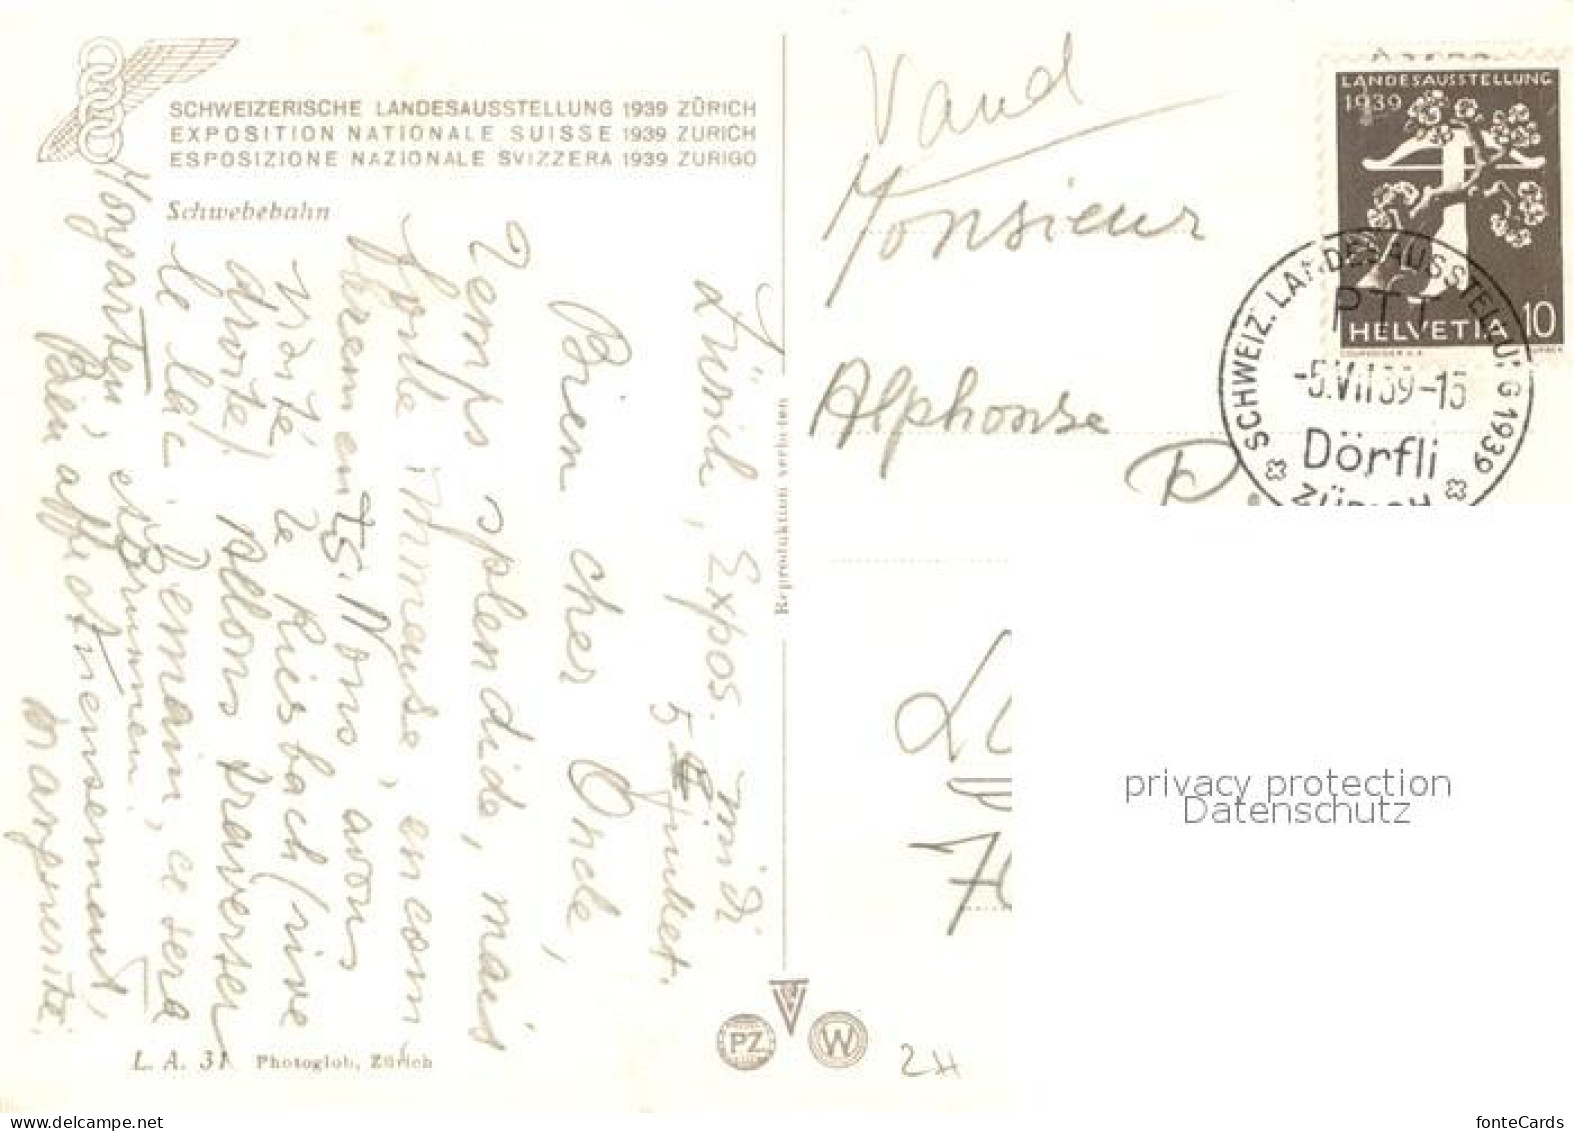 SCHWEIZERISCHE LANDESAUSSTELLUNG 1939 ZÜRICH
EXPOSITION NATIONALE SUISSE 1939 ZURICH
ESPOSIZIONE NAZIONALE SVIZZERA 1939 ZURIGO
Schwebebahn
Zürich, Expos. midi
5 juillet.
Bien cher Oncle,
Temps splendide, mais
foule immense, encom
brements. Nous avons
visité le Riesbach (rive
droite). Allons traverser
le lac. Demain, ce sera
Morgarten, et Brunnen.
Bien affectueusement,
Marguerite.
L. A. 31 Photoglob, Zürich
Reproduktion verboten
PZ
W
Vaud
Monsieur
Alphonse
R.
LANDESAUSSTELLUNG
1939
HELVETIA 10
SCHWEIZ. LANDESAUSSTELLUNG 1939
PTT
-5.VII 39-15
Dörfli
ZÜRICH
privacy protection
Datenschutz
fonteCards